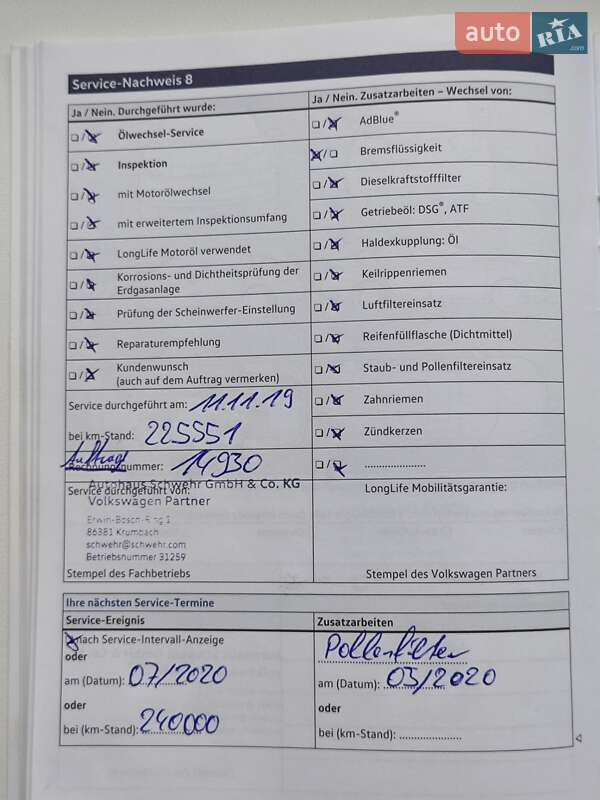 auto RIA.com
Service-Nachweis 8
Ja / Nein. Durchgeführt wurde:
Ölwechsel-Service
Inspektion
mit Motorölwechsel
mit erweitertem Inspektionsumfang
LongLife Motoröl verwendet
Korrosions- und Dichtheitsprüfung der
Erdgasanlage
Prüfung der Scheinwerfer-Einstellung
Reparaturempfehlung
Kundenwunsch
(auch auf dem Auftrag vermerken)
Service durchgeführt am: 11.11.19
bei km-Stand: 225551
Auftrags
Rechnungsnummer: 14930
Service durchgeführt von:
Autohaus Schwehr GmbH & Co. KG
Volkswagen Partner
Erwin-Bosch-Ring 1
86381 Krumbach
schwehr@schwehr.com
Betriebsnummer 31259
Stempel des Fachbetriebs
Ja / Nein. Zusatzarbeiten – Wechsel von:
AdBlue®
Bremsflüssigkeit
Dieselkraftstofffilter
Getriebeöl: DSG®, ATF
Haldexkupplung: Öl
Keilrippenriemen
Luftfiltereinsatz
Reifenfüllflasche (Dichtmittel)
Staub- und Pollenfiltereinsatz
Zahnriemen
Zündkerzen
.....................
LongLife Mobilitätsgarantie:
Stempel des Volkswagen Partners
Ihre nächsten Service-Termine
Service-Ereignis
nach Service-Intervall-Anzeige
oder
am (Datum): 07/2020
oder
bei (km-Stand): 240000
Zusatzarbeiten
Pollenfilter
am (Datum): 03/2020
oder
bei (km-Stand): .....................